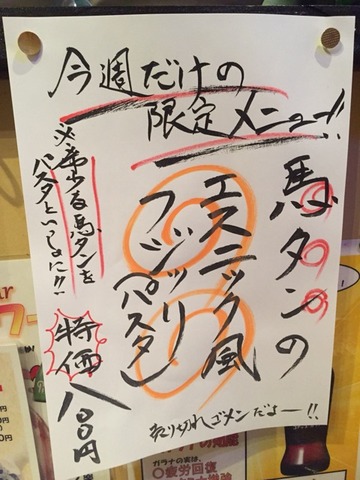 今週だけの
限定メニュー!!
馬タンの
エスニック風
フジッリ
(パスタ)
馬タンを
パスタといっしょに!!
特価
八〇〇円
売り切れゴメンだよー!!
ガラナの実は、
疲労回復